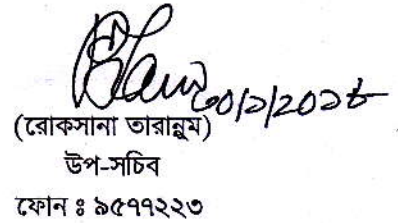 ৩০/১/২০১৮
(রোকসানা তারান্নুম)
উপ-সচিব
ফোন ঃ ৯৫৭৭২২৩